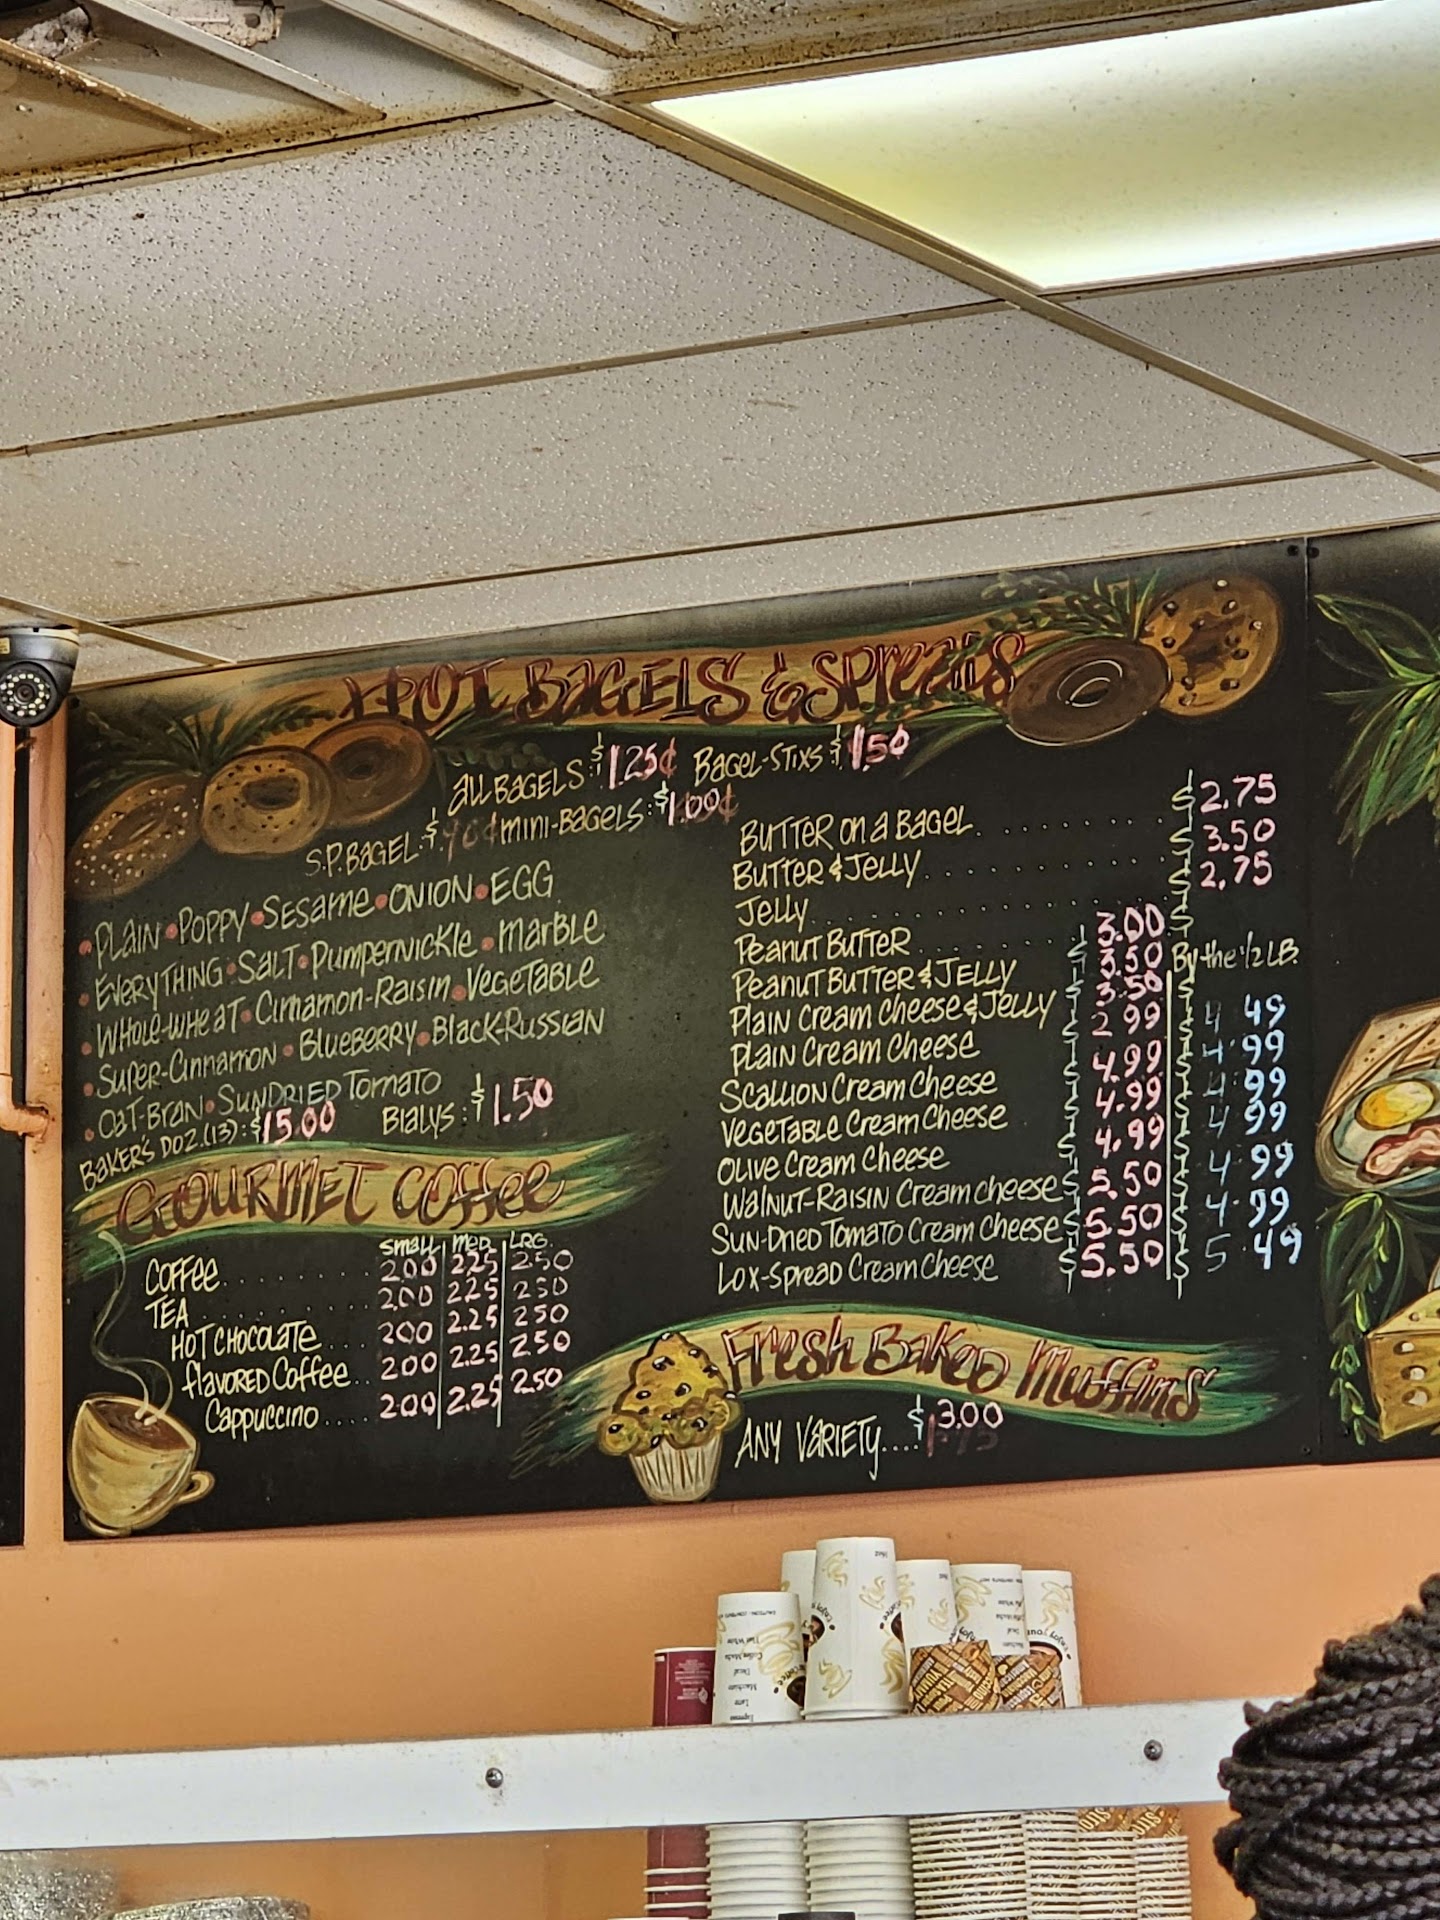 HOT BAGELS & Spreads
ALL BAGELS: $1.25¢ BAGEL-STIXS: $1.50
S.P. BAGEL: $ MINI-BAGELS: $1.00¢
• PLAIN • POPPY • SESAME • ONION • EGG
• EVERYTHING • SALT • PUMPERNICKLE • MARBLE
• WHOLE-WHEAT • CINNAMON-RAISIN • VEGETABLE
• SUPER-CINNAMON • BLUEBERRY • BLACK-RUSSIAN
• OAT-BRAN • SUNDRIED TOMATO
BAKER'S DOZ.(13): $15.00 BIALYS: $1.50
BUTTER ON A BAGEL $2.75
BUTTER & JELLY $3.50
JELLY $2.75
PEANUT BUTTER $3.00
PEANUT BUTTER & JELLY $3.50 By the 1/2 LB.
PLAIN CREAM CHEESE & JELLY $3.50
PLAIN CREAM CHEESE $2.99 $4.49
SCALLION CREAM CHEESE $4.99 $4.99
VEGETABLE CREAM CHEESE $4.99 $4.99
OLIVE CREAM CHEESE $4.99 $4.99
WALNUT-RAISIN CREAM CHEESE $5.50 $4.99
SUN-DRIED TOMATO CREAM CHEESE $5.50 $4.99
LOX-SPREAD CREAM CHEESE $5.50 $5.49
GOURMET COFFEE
SMALL MED. LRG.
COFFEE 200 225 250
TEA 200 225 250
HOT CHOCOLATE 200 2.25 250
FLAVORED COFFEE 200 225 250
CAPPUCCINO 200 2.25 250
FRESH BAKED MUFFINS
ANY VARIETY.... $3.00